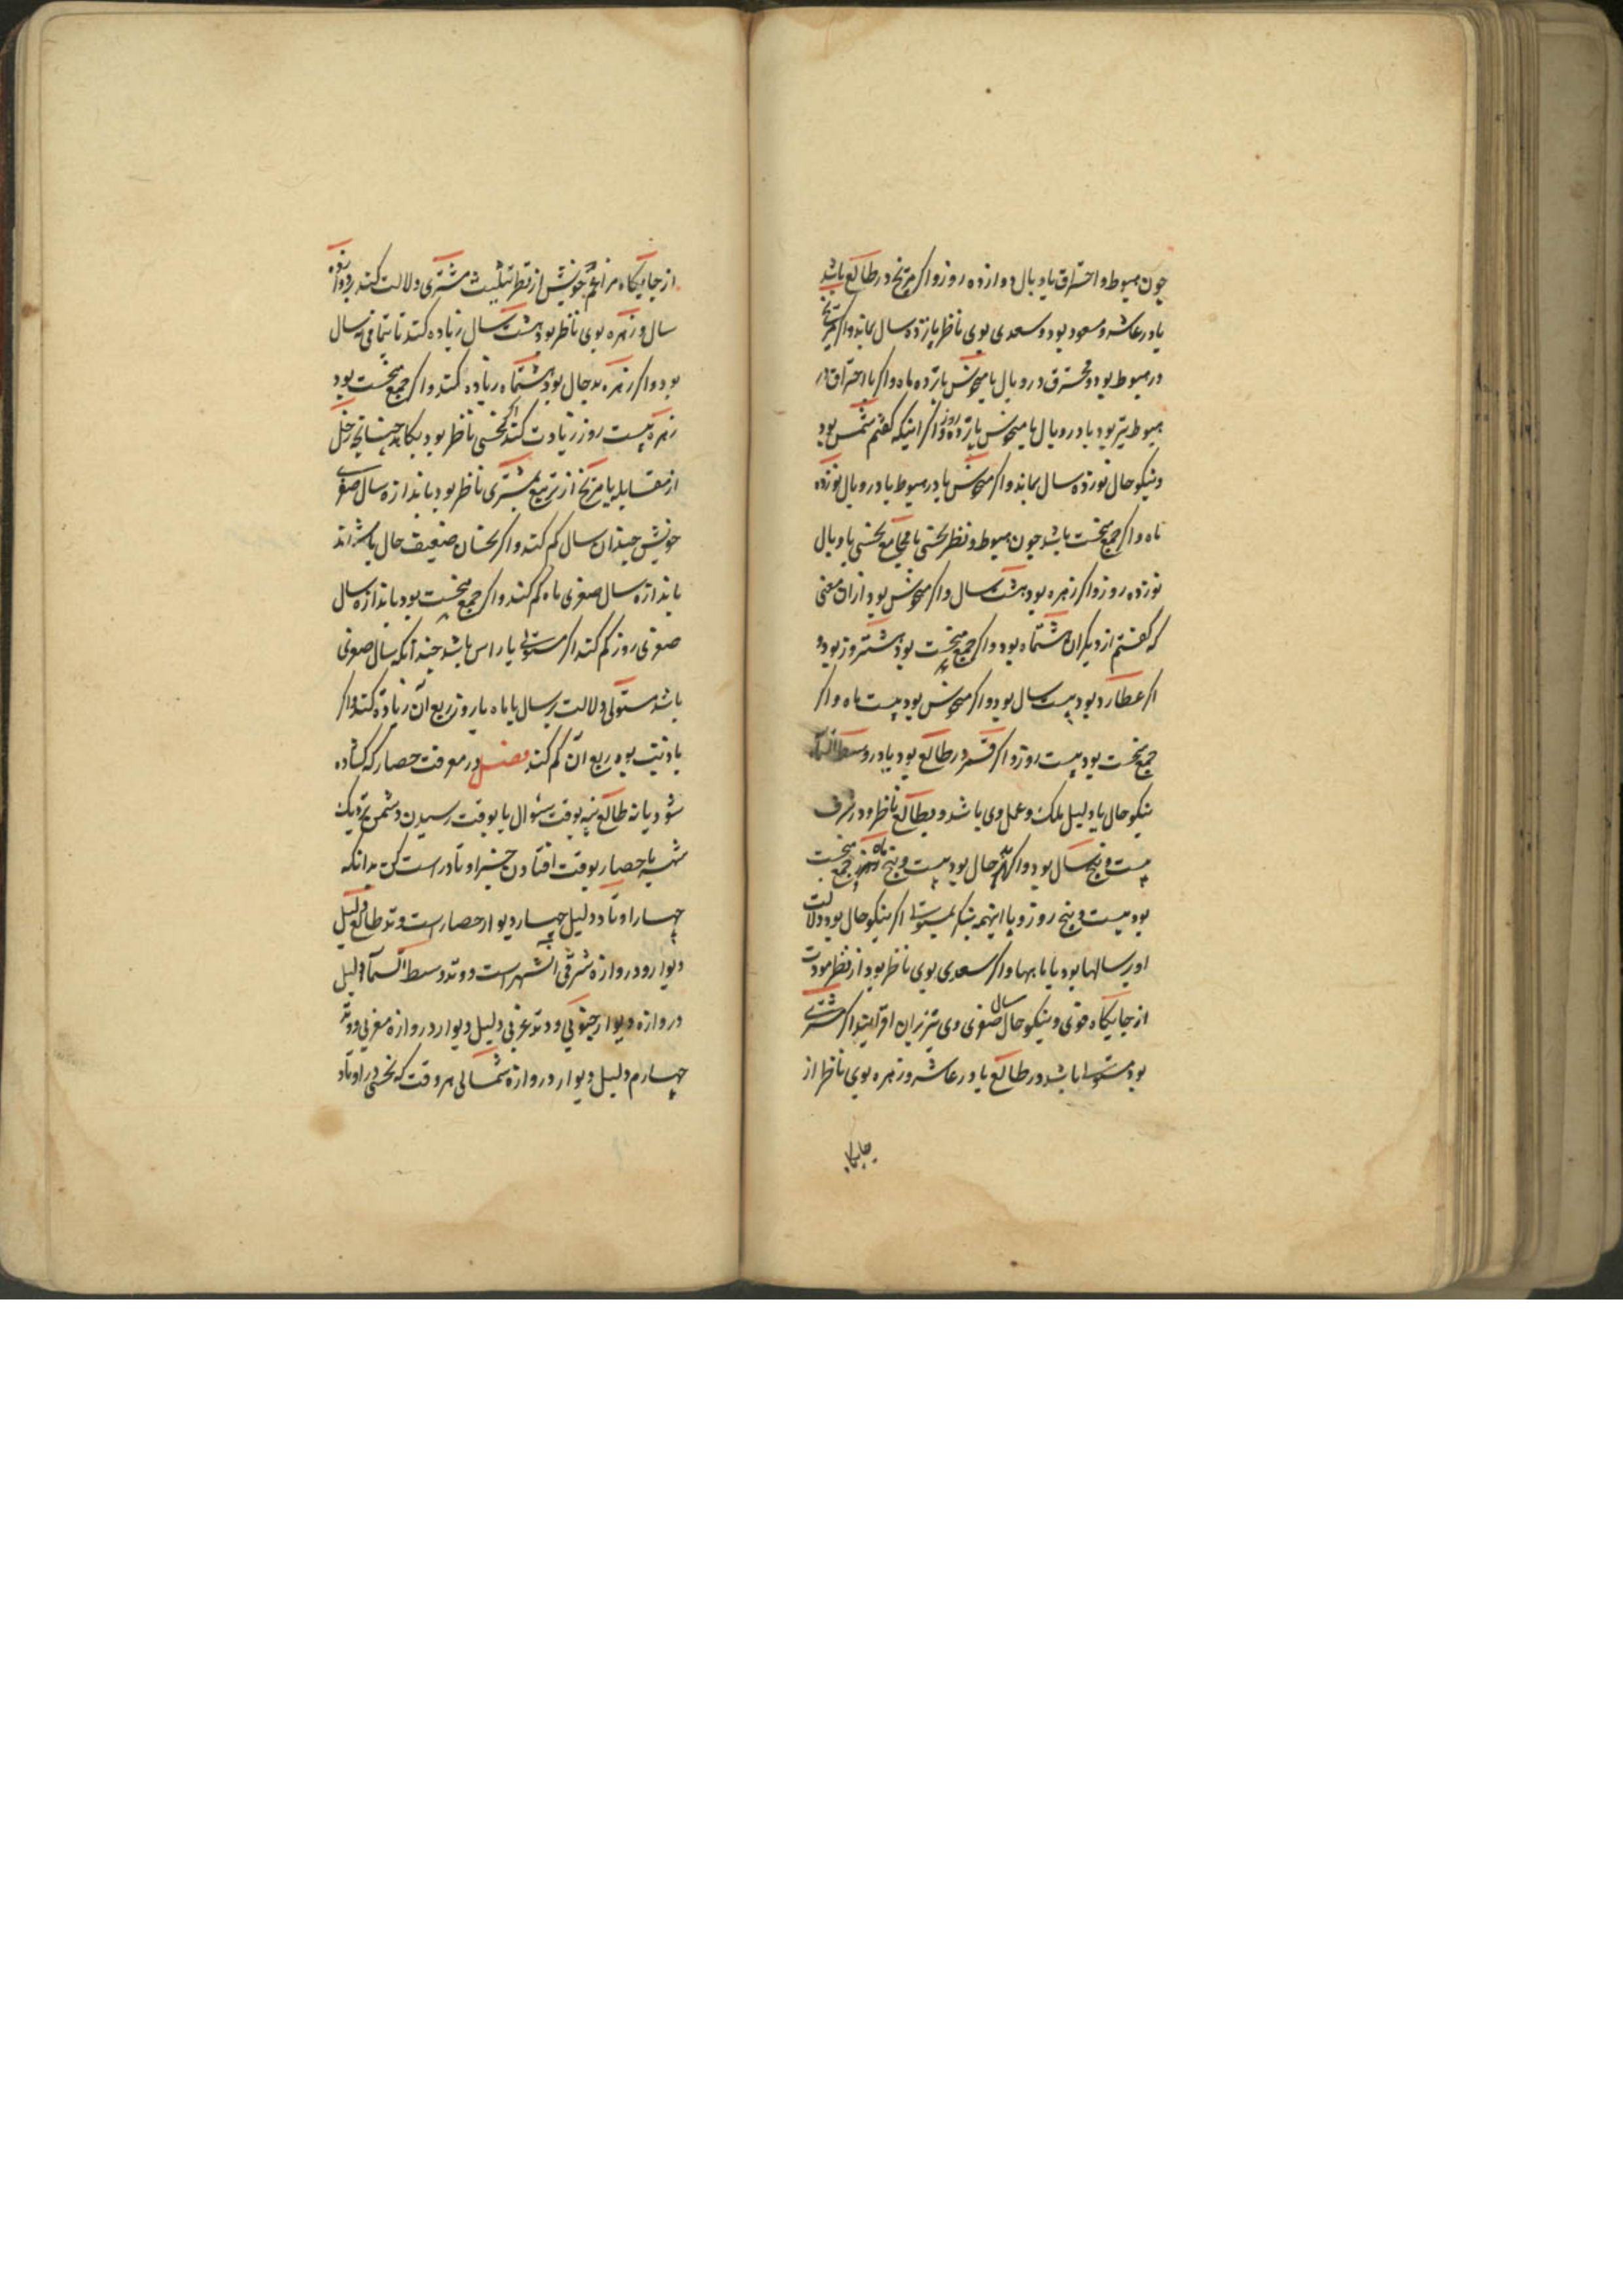 چون هبوط و احتراق یا وبال دوازده روز و اکر مریخ در طالع باشد
یا در عاشر و مسعود بود و سعدی بوی ناظر پانزده سال بماند و اکر مریخ
در هبوط بود و محترق در وبال یا منحوس پانزده ماه و اکر با احتراق در
هبوط نیز بود یا در وبال یا منحوس پانزده روز و اکر اینکه کفتم شمس بود
و نیکو حال نوزده سال بماند و اکر منحوس یا در هبوط یا در وبال نوزده
ماه و اکر جمع نحست باشد چون هبوط و نظر نحسی یا مجامع نحسی یا وبال
نوزده روز و اکر زهره بود هشت سال و اکر منحوس بود ازان معنی
که کفتم از دیکران هشتماه بود و اکر جمع نحست بود هشت روز بود و
اکر عطارد بود بیست سال بود و اکر منحوس بود بیست ماه و اکر
جمع نحست بود بیست روز و اکر قمر در طالع بود یا در وسط السماء
نیکو حال یا دلیل ملک و عمل وی باشد و بطالع ناظر و در شرف
بیست و پنج سال بود و اکر بد حال بود بیست و پنج ماه و اکر جمع نحست
بود بیست و پنج روز و با اینهمه بنکر بمستولی اکر نیکو حال بود دلالت
او بر سالها بود یا ماهها و اکر سعدی بوی ناظر بود از نظر مودت
از جایکاه قوی و نیکو حال سال صغری وی نیز بران افزایند اکر مشتری
بود مستولی باشد در طالع یا در عاشر و زهره بوی ناظر از
جایکاه
از جایکاه مزاعم خویش از نظر تثلیث مشتری دلالت کند بر دوازده
سال و زهره بوی ناظر بود هشت سال زیاده کند تا بتمامی سال
بود و اکر زهره بد حال بود هشتماه زیاده کند و اکر جمع نحست بود
زهره بیست روز زیادت کند اکر نحسی ناظر بود بکاهد چنانچه زحل
از مقابله یا مریخ از تربیع بمشتری ناظر بود باندازه سال صغری
خویش چندان سال کم کند و اکر نحسان ضعیف حال باشند
باندازه سال صغری ماه کم کند و اکر جمع نحست بود باندازه سال
صغری روز کم کند اکر مستولی با راس باشد چندانکه سال صغری
باشد مستولی دلالت بر سال یا ماه یا روز ربع آن زیاده کند و اکر
با ذنب بود ربع آن کم کند فصل در معرفت حصار که کشاده
شود یا نه طالع بنه بوقت سئوال یا بوقت رسیدن دشمن نزدیک
شهر یا حصار بوقت افتادن خبر اوتاد راست کن بدانکه
چهار اوتاد دلیل چهار دیوار حصار است وتد طالع دلیل
دیوار و دروازه شرقی آن شهر است و وتد وسط السماء دلیل
دروازه و دیوار جنوبی و وتد غربی دلیل دیوار دروازه مغربی و وتد
چهارم دلیل دیوار دروازه شمالی هر وقت که نحسی در اوتاد